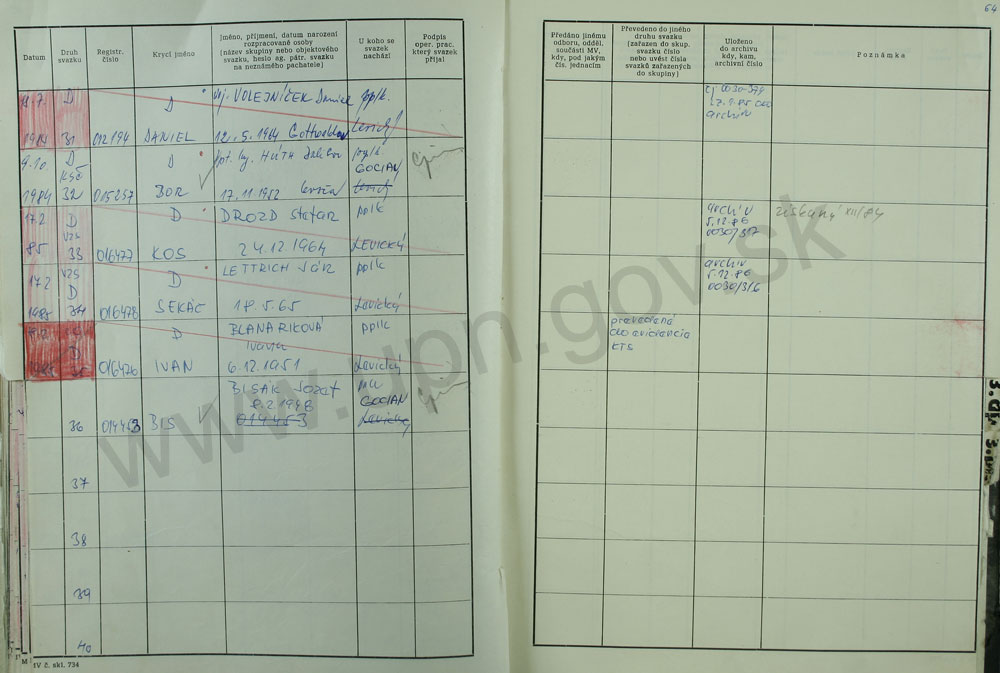 64
Datum
Druh svazku
Registr. číslo
Krycí jméno
Jméno, příjmení, datum narození
rozpracované osoby
(název skupiny nebo objektového
svazku, heslo ag. pátr. svazku
na neznámého pachatele)
U koho se
svazek
nachází
Podpis
oper. prac.
který svazek
přijal
Předáno jinému
odboru, odděl.
součásti MV,
kdy, pod jakým
čís. jednacím
Převedeno do jiného
druhu svazku
(zařazen do skup.
svazku číslo
nebo uvést čísla
svazků zařazených
do skupiny)
Uloženo
do archivu
kdy, kam,
archivní číslo
Poznámka
D D VOLEJNÍČEK pplk.
1984 31 012194 DANIEL 12.5.1964
archiv
9.10. D D Ing. HÚTH pplk.
KSČ GOCIAN
1984 32 015257 BOR 17.11.1952
17.2 D D DROZD Štefan pplk
VZS
85 33 016477 KOS 24.12.1964 LEVICKÝ
archív
5.12.86
0030/317
získaný XII/84
17.2 VZS D LETTRICH Ján pplk
D
1985 34 016478 SEKÁČ 18.5.65 Levický
archiv
5.12.86
0030/316
D BLANARIKOVÁ pplk
Ivana
D 016476 IVAN 6.12.1951 Levický
prevedená
do evidencie
KTS
BISÁK Jozef
8.2.1948 GOCIAN
36 014453 BIS 014453 Levický
37
38
39
40
IV č. skl. 734
www.upn.gov.sk